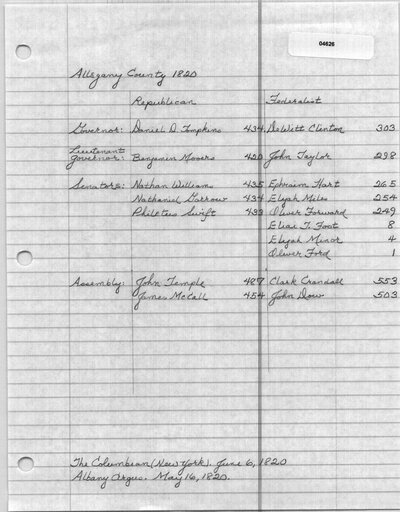 04626
Allegany County 1820
Republican Federalist
Governor: Daniel D. Tompkins 434 DeWitt Clinton 303
Lieutenant
Governor: Benjamin Mooers 420 John Taylor 298
Senators: Nathan Williams 435 Ephraim Hart 265
Nathaniel Garrow 434 Elijah Miles 254
Philetus Swift 433 Oliver Forward 249
Elias T. Foot 8
Elijah Minor 4
Oliver Ford 1
Assembly: John Temple 487 Clark Crandall 553
James McCall 454 John Dow 503
The Columbian (New York). June 6, 1820
Albany Argus. May 16, 1820.